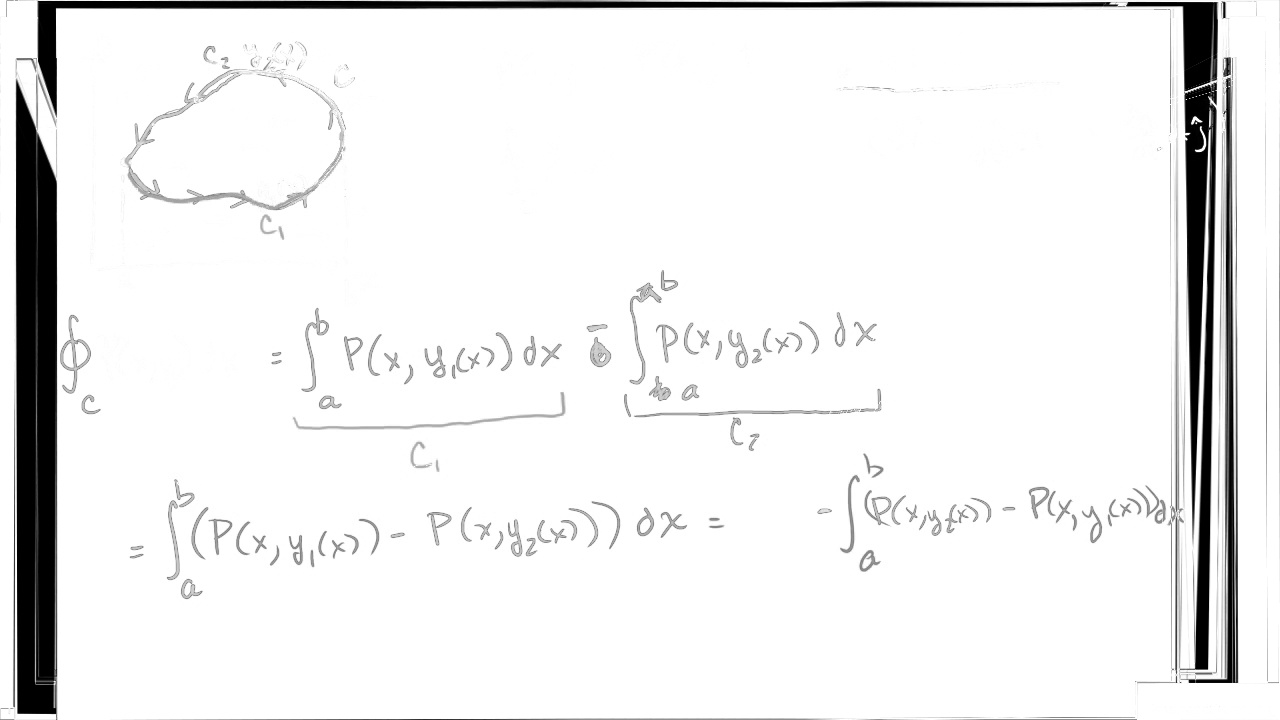 C₂ y₂(x) C
C₁
+ ĵ
∮_C = ∫_a^b P(x, y₁(x)) dx - ∫_a^b P(x, y₂(x)) dx
C₁ C₂
= ∫_a^b (P(x, y₁(x)) - P(x, y₂(x))) dx = - ∫_a^b (P(x, y₂(x)) - P(x, y₁(x))) dx